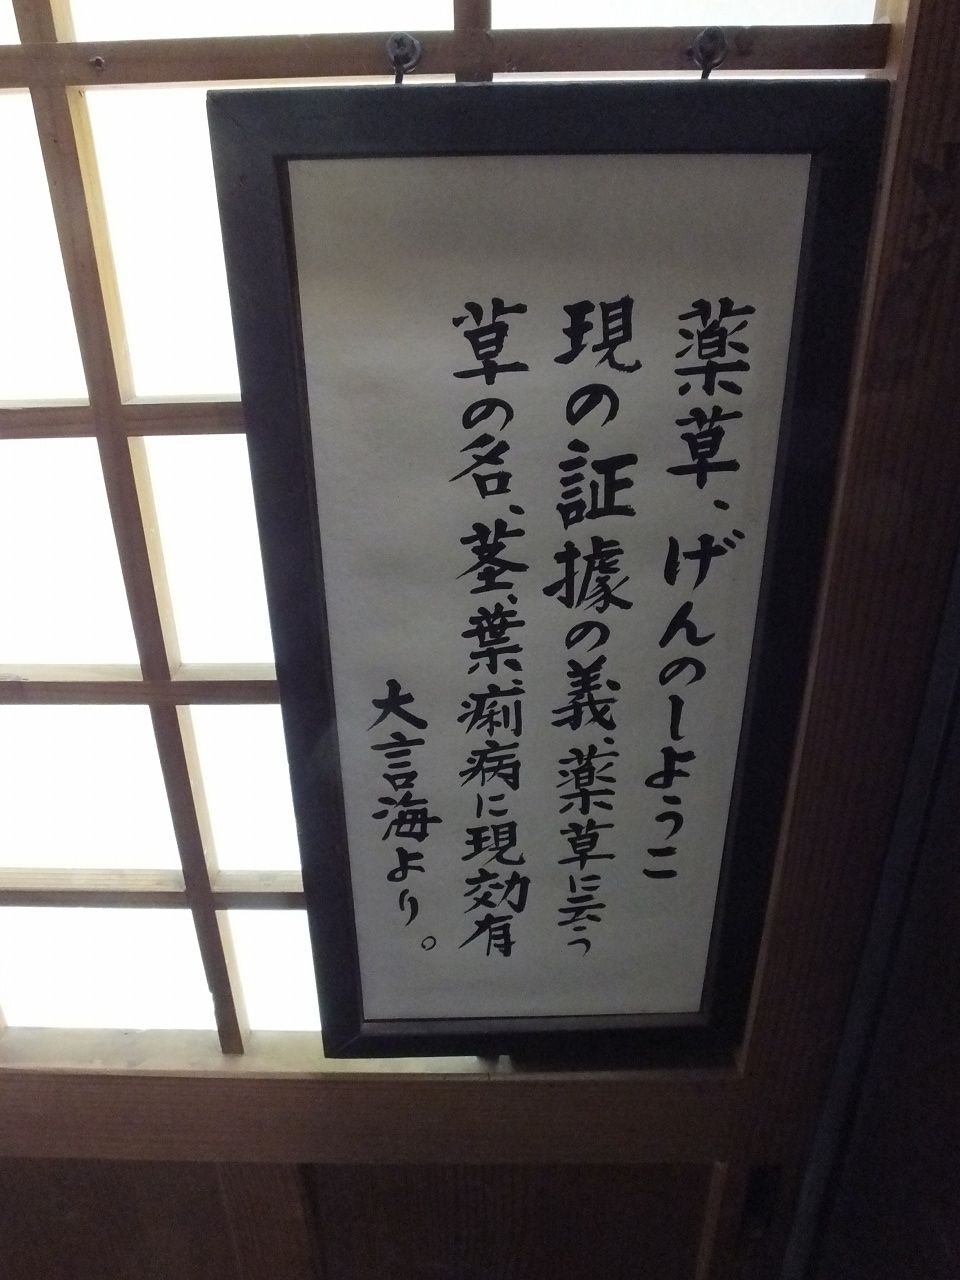 薬草、げんのしようこ
現の証據の義、薬草に云う
草の名、茎、葉、痢病に現効有
大言海より。